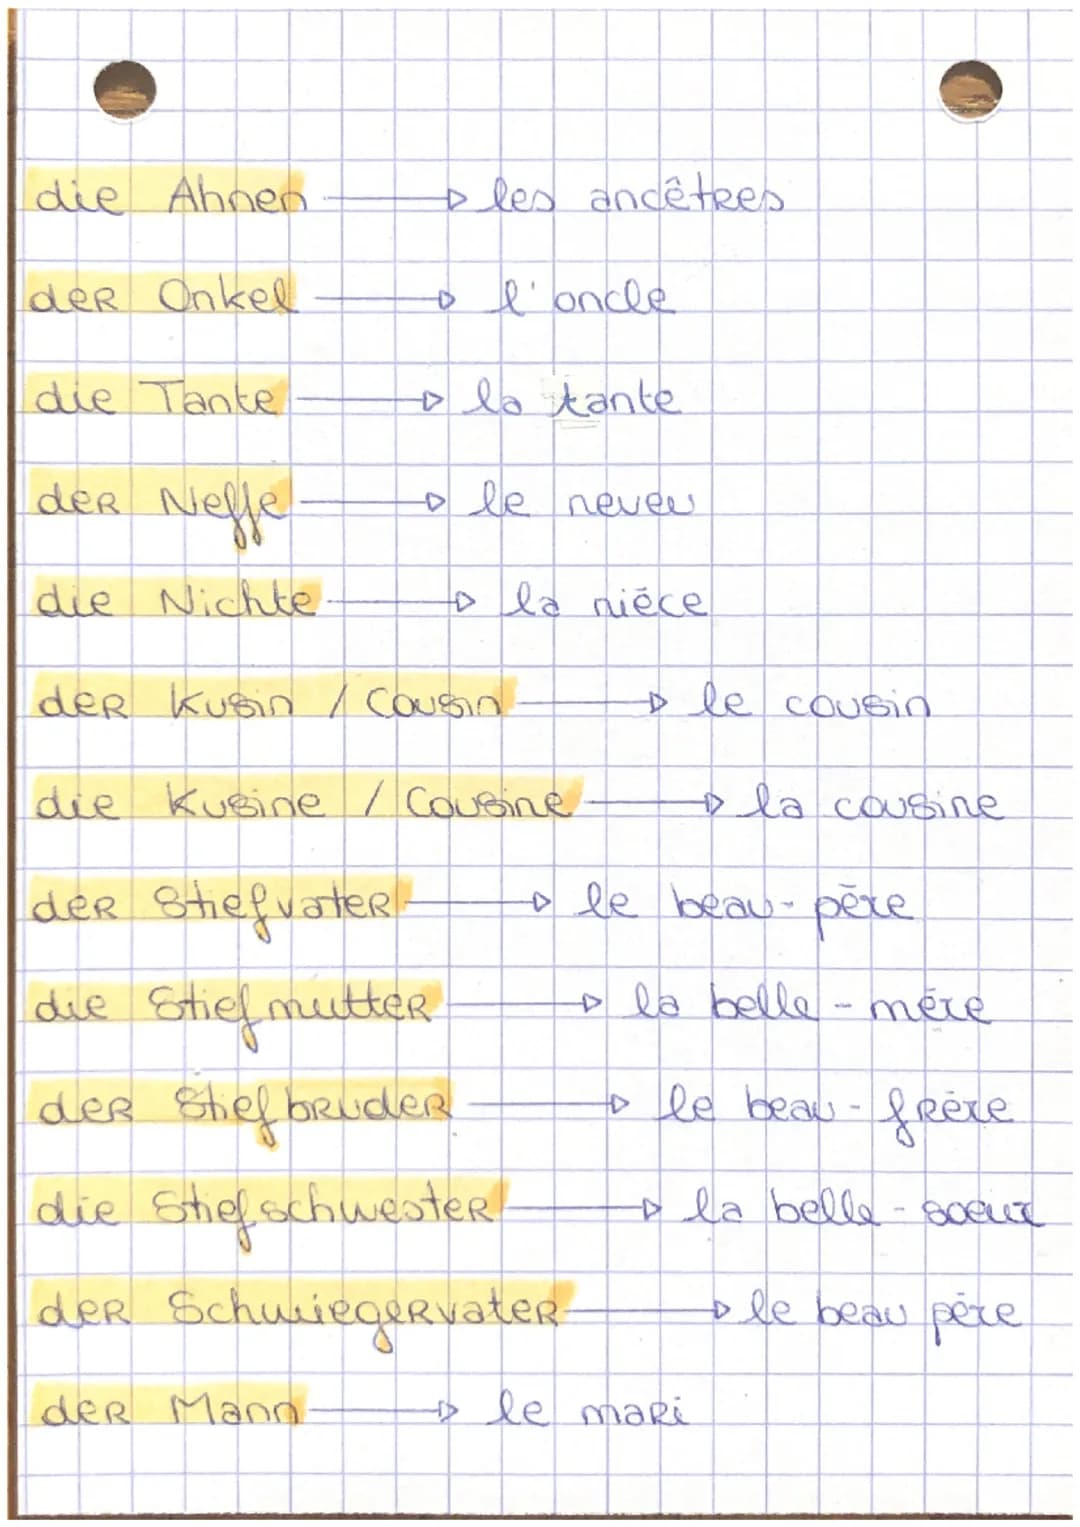 die Ahnen → les ancêtres
der Onkel → l'oncle
die Tante → la tante
der Neffe → le neveu
die Nichte → la nièce
der Kusin / Cousin → le cousin
die Kusine / Cousine → la cousine
der Stiefvater → le beau-père
die Stiefmutter → la belle-mère
der Stiefbruder → le beau-frère
die Stiefschwester → la belle-soeur
der Schwiegervater → le beau père
der Mann → le mari